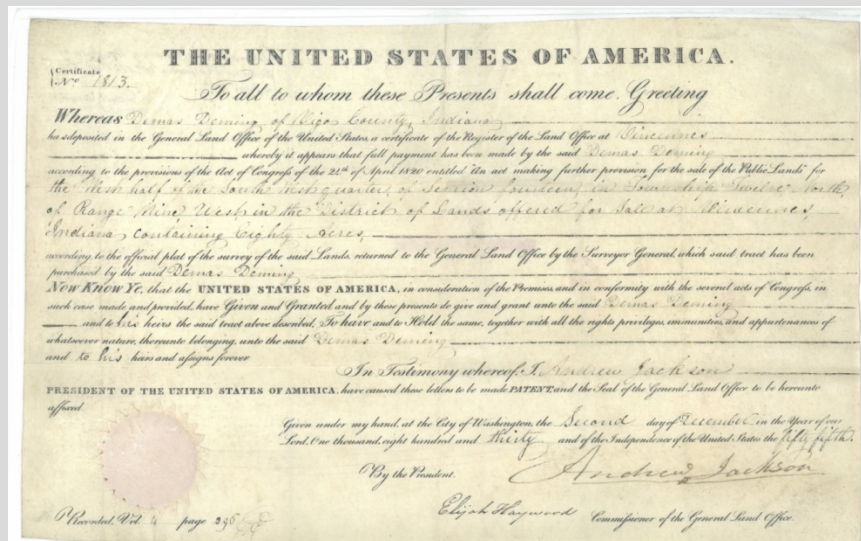 THE UNITED STATES OF AMERICA.
Certificate
No. 1813.
To all to whom these Presents shall come, Greeting
Whereas Demas Deming of Vigo County, Indiana
has deposited in the General Land Office of the United States, a certificate of the Register of the Land Office at Vincennes
whereby it appears that full payment has been made by the said Demas Deming
according to the provisions of the Act of Congress of the 24th of April 1820 entitled "An act making further provision for the sale of the Public Lands" for
the West half of the South West quarter, of Section fourteen, in Township Twelve North,
of Range Nine, West, in the District of Lands offered for Sale at Vincennes,
Indiana, containing Eighty Acres,
according to the official plat of the survey of the said Lands, returned to the General Land Office by the Surveyor General, which said tract has been
purchased by the said Demas Deming
Now Know Ye, that the UNITED STATES OF AMERICA, in consideration of the Premises, and in conformity with the several acts of Congress, in
such case made and provided, have Given and Granted and by these presents do give and grant unto the said Demas Deming
and to his heirs the said tract above described, To have and to Hold the same, together with all the rights privileges, immunities, and appurtenances of
whatsoever nature, thereunto belonging, unto the said Demas Deming
and to his heirs and assigns forever
In Testimony whereof, I, Andrew Jackson
PRESIDENT OF THE UNITED STATES OF AMERICA, have caused these letters to be made PATENT, and the Seal of the General Land Office to be hereunto
affixed
Given under my hand, at the City of Washington, the Second day of December in the Year of our
Lord, One thousand, eight hundred and thirty and of the Independence of the United States the fifty fifth.
By the President.
Andrew Jackson
Elijah Haywood Commissioner of the General Land Office.
Recorded, Vol 4 page 296